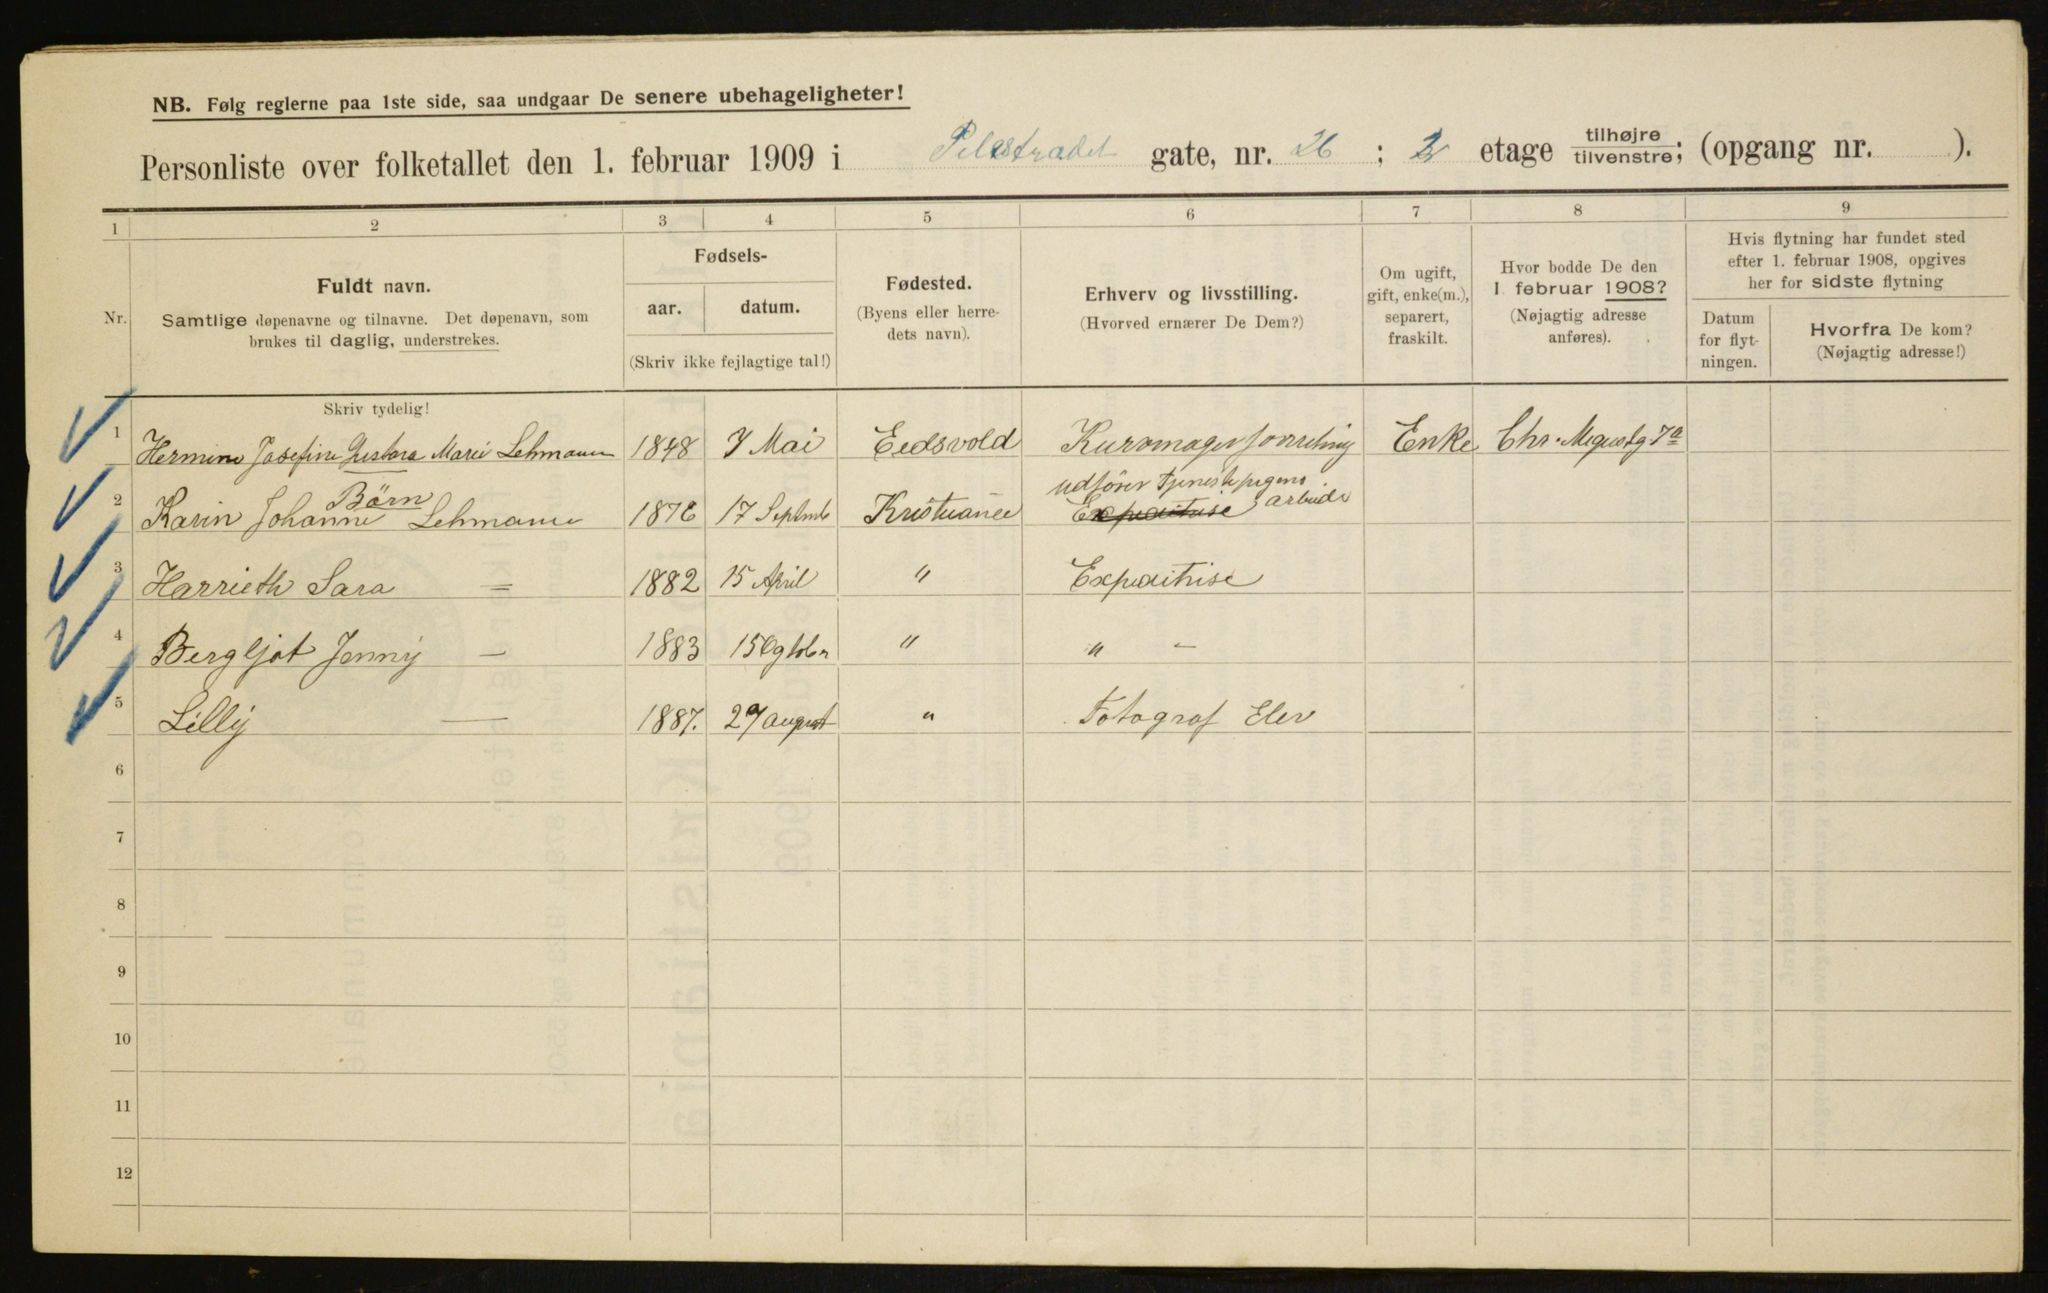 NB. Følg reglerne paa 1ste side, saa undgaar De senere ubehageligheter!
Personliste over folketallet den 1. februar 1909 i Pilestrædet gate, nr. 26 ; 2 etage tilhøjre / tilvenstre; (opgang nr. ).
1 2 3 4 5 6 7 8 9
Nr.
Fuldt navn.
Samtlige døpenavne og tilnavne. Det døpenavn, som
brukes til daglig, understrekes.
Fødsels-
aar. datum.
(Skriv ikke fejlagtige tal!)
Fødested.
(Byens eller herre-
dets navn).
Erhverv og livsstilling.
(Hvorved ernærer De Dem?)
Om ugift,
gift, enke(m.),
separert,
fraskilt.
Hvor bodde De den
1 februar 1908?
(Nøjagtig adresse
anføres).
Hvis flytning har fundet sted
efter 1. februar 1908, opgives
her for sidste flytning
Datum
for flyt-
ningen.
Hvorfra De kom?
(Nøjagtig adresse!)
Skriv tydelig!
1 Hermine Josefine Gustava Marie Lehmann 1848 7 Mai Eedsvold Enke Chr.
Börn udfører Tjenestepigens
2 Karin Johanne Lehmann 1876 17 Septmb Kristiania Expeditrise arbeide
3 Harrieth Sara = 1882 15 April " Expeditrise
4 Bergljot Jenny — 1883 15 Ogtober " " —
5 Lilly — 1887. 27 august " Fotograf Elev
6
7
8
9
10
11
12